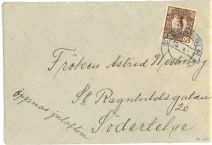 Fröken Astrid Westerberg
St Ragnhildsgatan
20
Södertelge
öppnas julafton